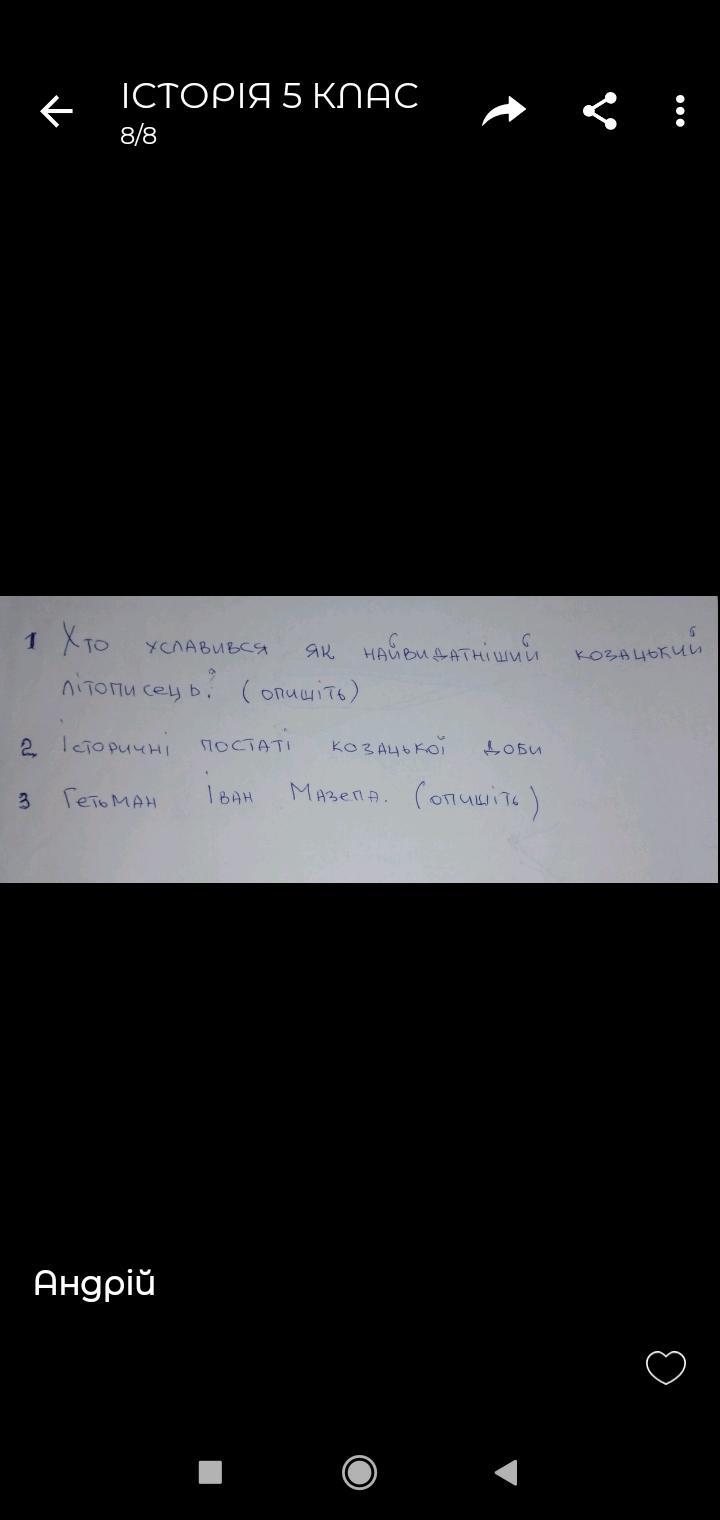 ІСТОРІЯ 5 КЛАС
8/8
1 Хто уславився як найвидатніший козацький
літописець? (опишіть)
2 Історичні постаті козацької доби
3 Гетьман Іван Мазепа. (опишіть)
Андрій